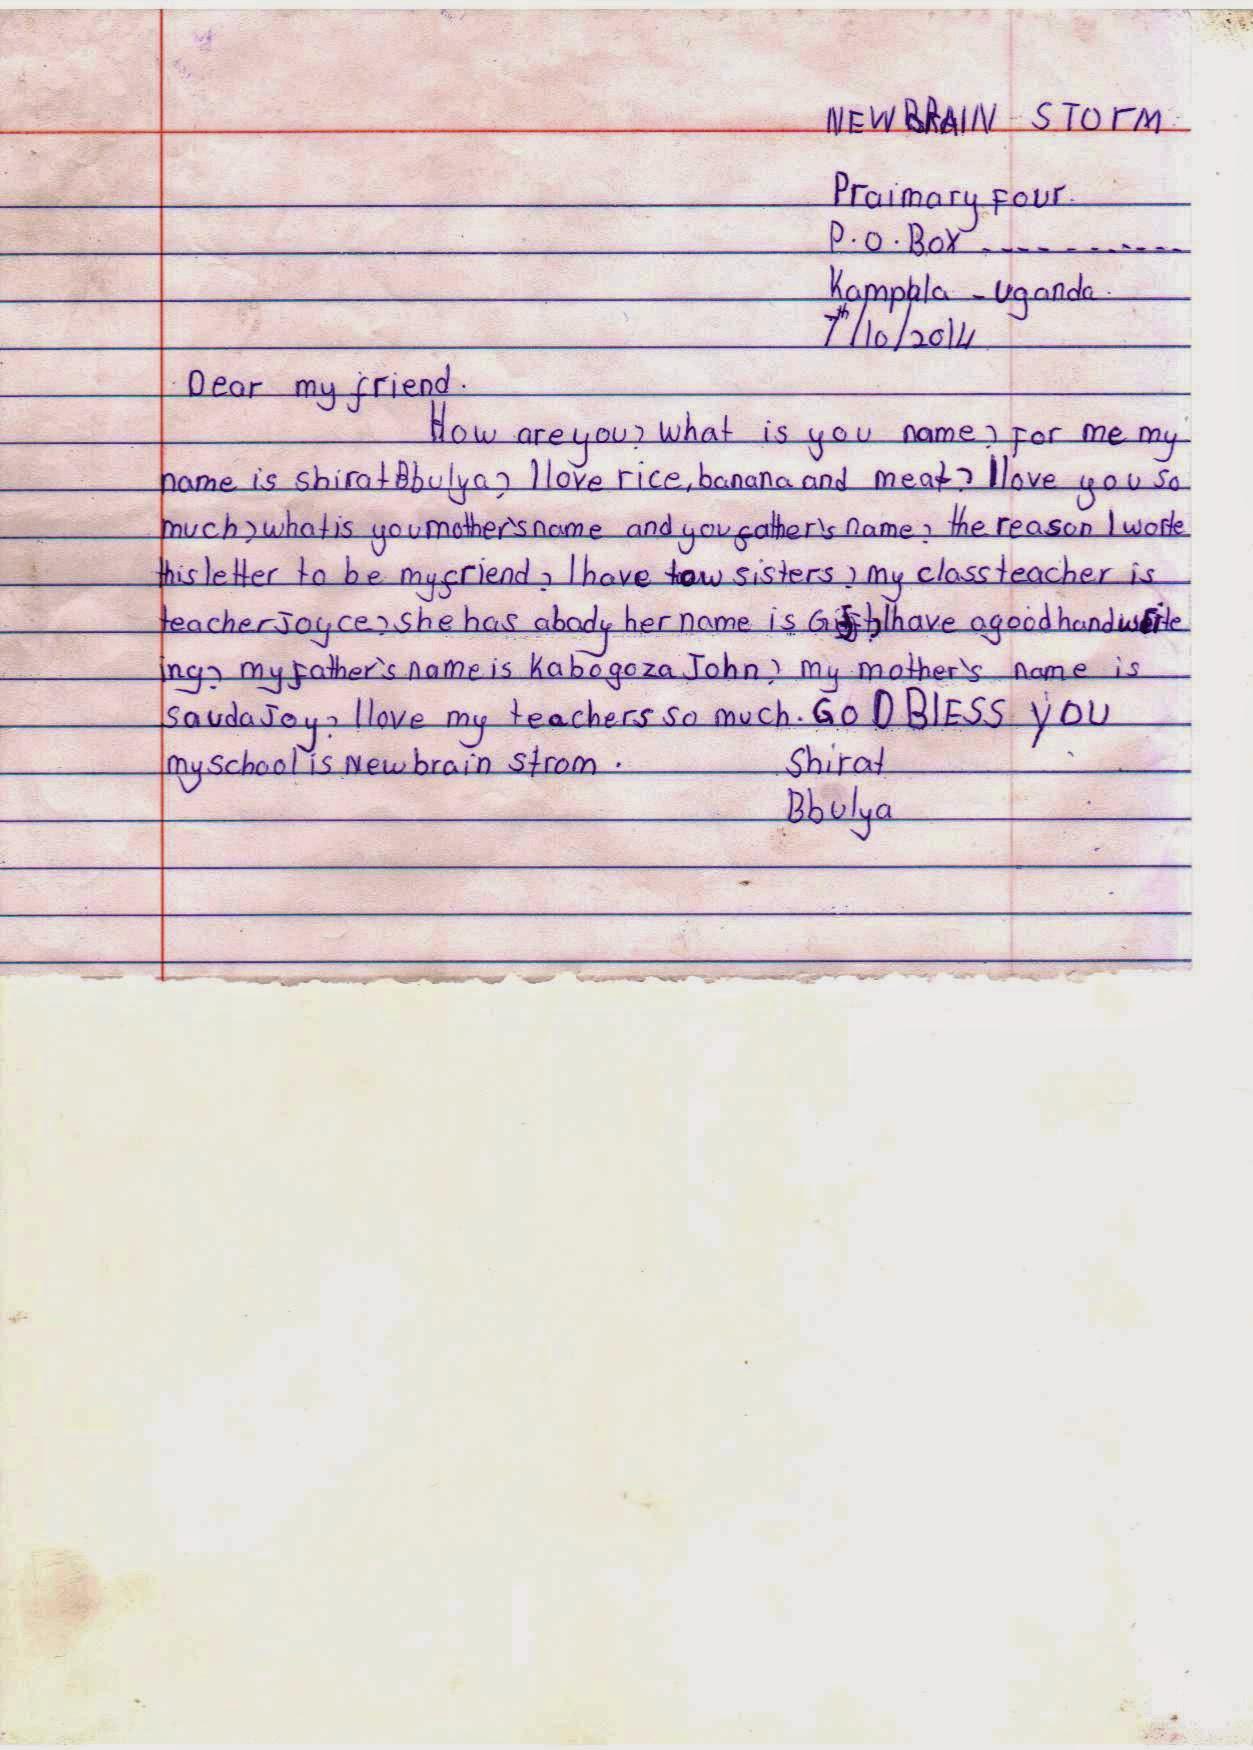 NEW BRAIN STOrM
Praimary Four.
P.O.Box ............
Kampala - Uganda.
7th/10/2014
Dear my friend.
How are you? What is you name? For me my
name is shirat Bbulya? I love rice, banana and meat? I love you so
much? what is you mother's name and you father's name? the reason I worte
this letter to be my friend? I have tow sisters? my class teacher is
teacher Joyce? she has abady her name is Gift? I have agood hand write
ing? my father's name is Kabogoza John? my mother's name is
Sauda Joy? I love my teachers so much. GOD BlESS YOU
my school is New brain strom.
Shirat
Bbulya